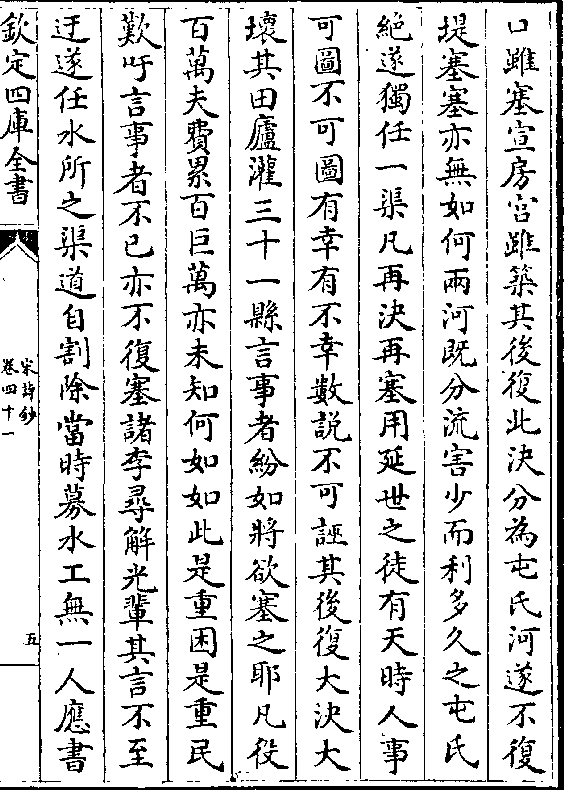 口雖塞宣房宫雖築其後復此決分為屯氏河遂不復
堤塞塞亦無如何兩河既分流害少而利多久之屯氏
絶遂獨任一渠凡再決再塞用延世之徒有天時人事
可圖不可圖有幸有不幸數説不可誣其後復大決大
壊其田廬灌三十一縣言事者紛如將欲塞之耶凡役
百萬夫費累百巨萬亦未知何如如此是重困是重民
歎吁言事者不已亦不復塞諸李尋解光輩其言不至
迂遂任水所之渠道自割除當時募水工無一人應書
欽定四庫全書
宋詩鈔
卷四十一
五